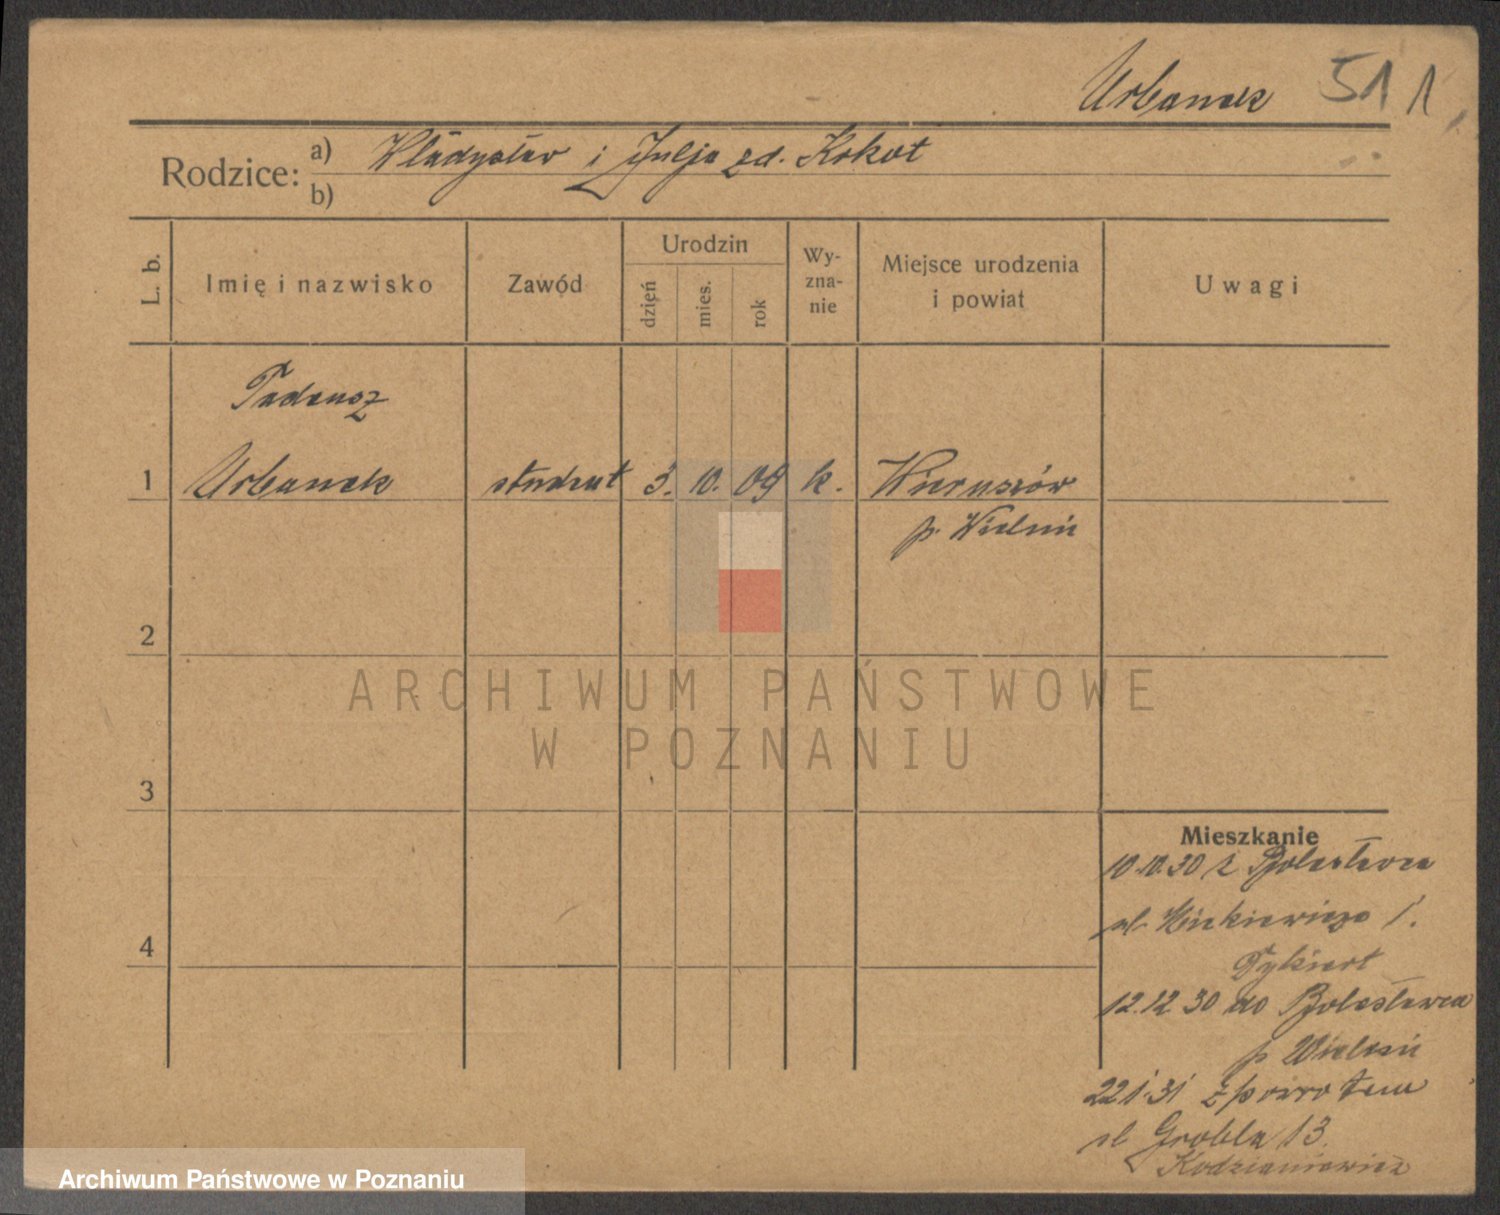 Urbanek 511
Rodzice: a) Władysław i Julja zd. Kokot
b)
L. b.
Imię i nazwisko
Zawód
Urodzin
dzień
mies.
rok
Wy-
zna-
nie
Miejsce urodzenia
i powiat
Uwagi
Tadeusz
1 Urbanek student 3. 10. 09 k. Wieruszów
p. Wieluń
2
3
4
Mieszkanie
10.10.30 z Bolesławca
ul. Mickiewicza 1.
12.12.30 do Bolesławca
p Wieluń
22 1.31 z powrotem
ul Grobla 13
ARCHIWUM PAŃSTWOWE
W POZNANIU
Archiwum Państwowe w Poznaniu